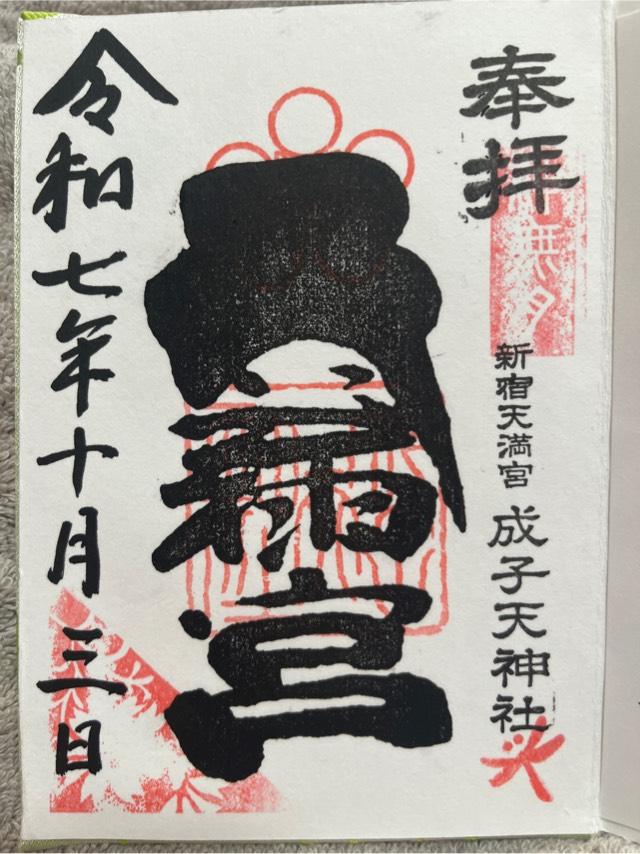 奉拝
神無月
新宿天満宮 成子天神社
天満宮
令和七年十月三日